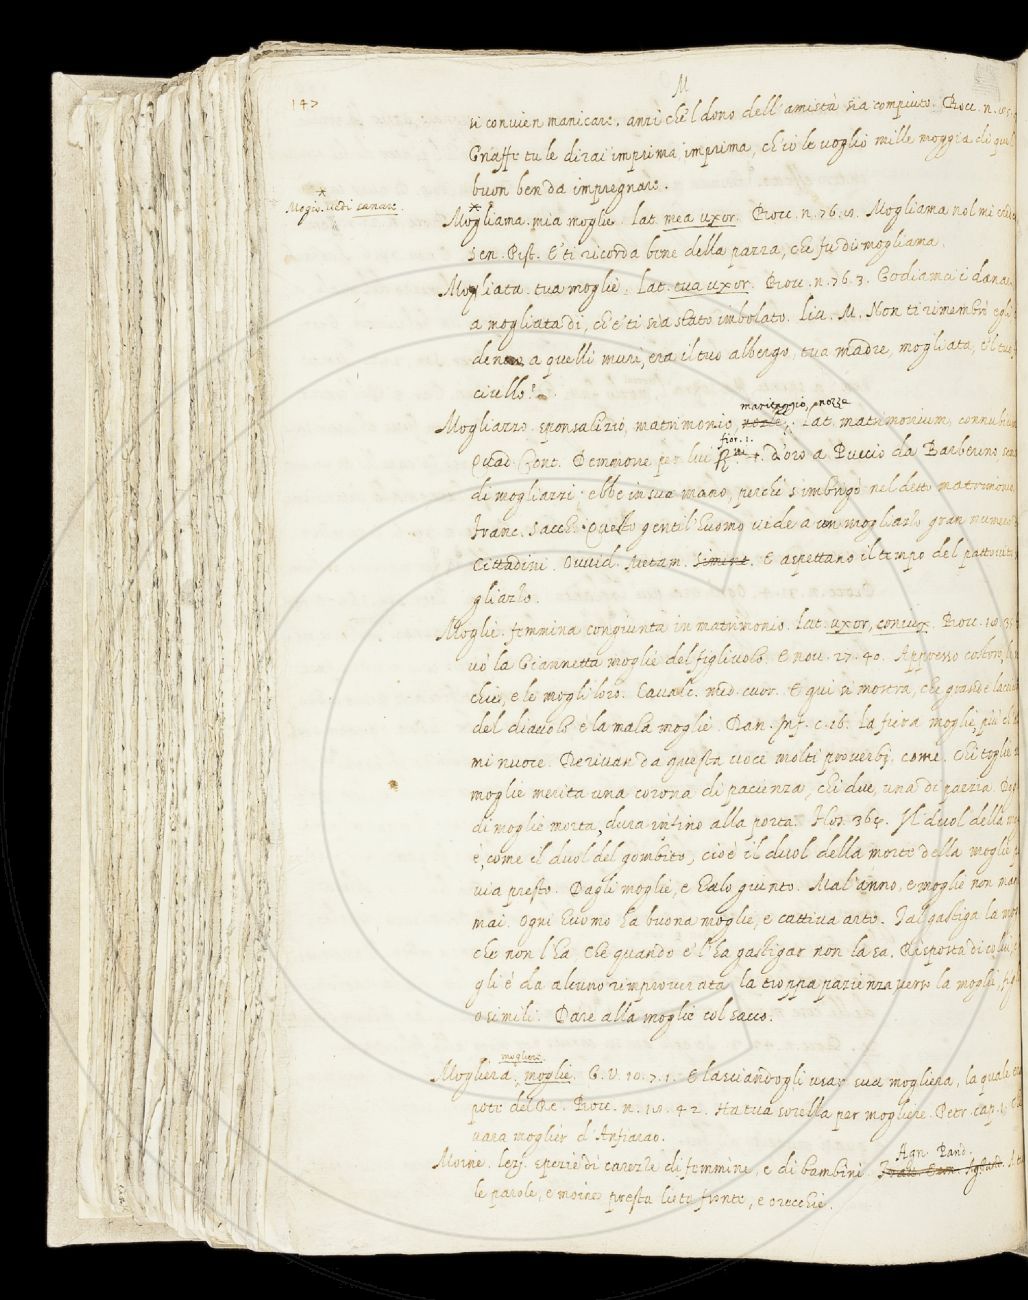 M
147
si convien manicare. anzi che'l dono dell'amistà sia compiuto. Bocc. n.
Gnaffe tu le dirai imprima, imprima, ch'io le voglio mille moggia di quel
buon ben da impregnare.
* Mogio. vedi canaro.
Mogliama. mia moglie. lat. mea uxor. Bocc. n. 76. Mogliama nol mi
Sen. Pist. E' ti ricorda bene della pazza, che fu di mogliama.
Mogliata. tua moglie. Lat. tua uxor. Bocc. n. 76. 3. Godiamci i danari
a mogliata di, ch'e' ti sia stato imbolato. Liv. M. Non ti rimembrò egli
a quelli muri, era il tuo albergo, tua madre, mogliata, e'l tuo
civello?
maritaggio, nozze
Mogliazzo. sponsalizio, matrimonio, nozze. Lat. matrimonium, connubium
fior. 1.
Quad. Cont. Demmone per lui d'oro a Puccio da Barberino,
di mogliazzi ebbe in sua mano, perchè s'imbrigò nel detto matrimonio
Franc. Sacch. Questo gentil'huomo vide a un mogliazzo gran numero
Cittadini. Ovvid. Metam. Simint. E aspettano il tempo del pattovito
gliazzo.
Moglie. femmina congiunta in matrimonio. Lat. uxor, coniux. Bocc. 18. 35
vò la Giannetta moglie del figlivolo. E nov. 27. 40. Appresso costoro, le
chie, e le mogli loro. Cavalc. med. cuor. E qui si mostra, che grande
del diavolo è la mala moglie. Dan. Inf. c. 16. la fiera moglie, più ch'
mi nuoce. Derivan da questa voce molti proverbj. come. Chi toglie
moglie merita una corona di pacienza, chi due, una di pazzia.
di moglie morta, dura infino alla porta. Flos. 364. Il duol della
è, come il duol del gombito, cioè il duol della morte della moglie
via presto. Dagli moglie, e halo giunto. Mal'anno, e moglie non man
mai. Ogni huomo ha buona moglie, e cattiva arte. Tal gastiga la mo
che non l'ha che quando e' l'ha gastigar non la sa. Risposta di colui,
gli è da alcuno rimproverata la troppa pazienza verso la moglie,
o simili. Dare alla moglie col sacco.
mogliere.
Mogliera, moglie. G. V. 10. 7. 1. E lasciandogli usar sua mogliera, la quale
pote del Re. Bocc. n. 18. 42. Ha tua sorella per mogliere. Petr. cap. 1.
vara moglier d'Anfiarao.
Agn. Pand.
Moine. lezj. spezie di carezze di femmine, e di bambini.
le parole, e moine presta lieta fronte, e orecchie.